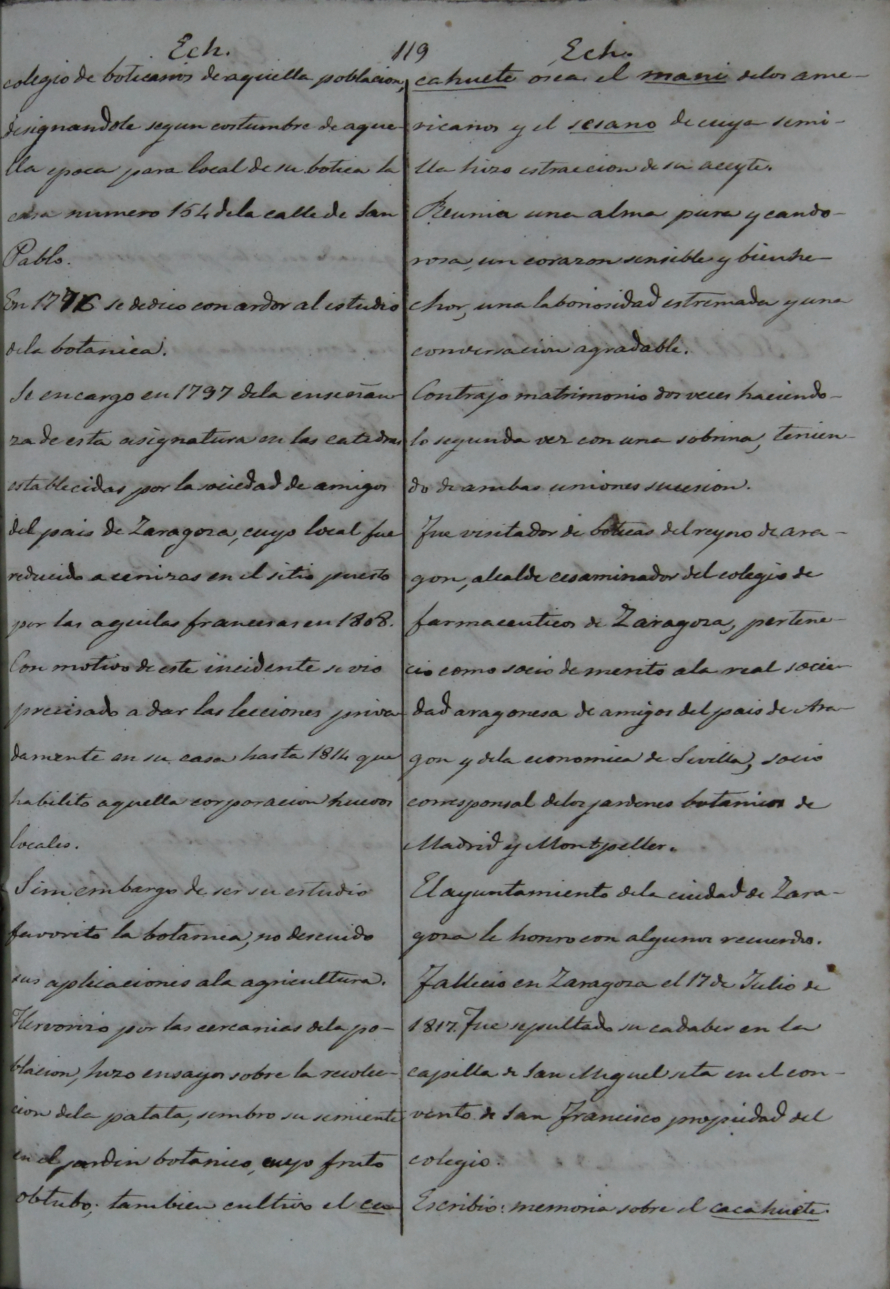 Ech. 119 Ech.
colegio de boticarios de aquella poblacion,
designandole segun costumbre de aque-
lla epoca para local de su botica la
casa numero 164 de la calle de San
Pablo.
En 1776 se dedico con ardor al estudio
de la botanica.
Se encargo en 1797 de la enseñan-
za de esta asignatura en las catedras
establecidas por la sociedad de amigos
del pais de Zaragoza, cuyo local fue
reducido a cenizas en el sitio puesto
por las aguilas francesas en 1808.
Con motivo de este incidente se vio
precisado a dar las lecciones priva-
damente en su casa hasta 1814 que
habilito aquella corporacion nuevos
locales.
Sin embargo de ser su estudio
favorito la botanica, no descuido
sus aplicaciones a la agricultura.
Hervorizo por las cercanias de la po-
blacion, hizo ensayos sobre la recolec-
cion de la patata, sembro su simiente
en el jardin botanico, cuyo fruto
obtubo; tambien cultivo el ca-
cahuete osea el mani de los ame-
ricanos y el sesano de cuya semi-
lla hizo estraccion de su aceyte.
Reunia una alma pura y cando-
rosa, un corazon sensible y bienhe-
chor, una laboriosidad estremada y una
conversacion agradable.
Contrajo matrimonio dos veces haciendo-
lo segunda vez con una sobrina, tenien-
do de ambas uniones sucesion.
Fue visitador de boticas del reyno de ara-
gon, alcalde ecsaminador del colegio de
farmaceuticos de Zaragoza, pertene-
cio como socio de merito a la real socie-
dad aragonesa de amigos del pais de Ara-
gon y de la economica de Sevilla, socio
corresponsal de los jardines botanicos de
Madrid y Montpeller.
El ayuntamiento de la ciudad de Zara-
goza le honro con algunos recuerdos.
Fallecio en Zaragoza el 17 de Julio de
1817. Fue sepultado su cadaber en la
capilla de San Miguel sita en el con-
vento de San Francisco propiedad del
colegio.
Escribio: memoria sobre el cacahuete.